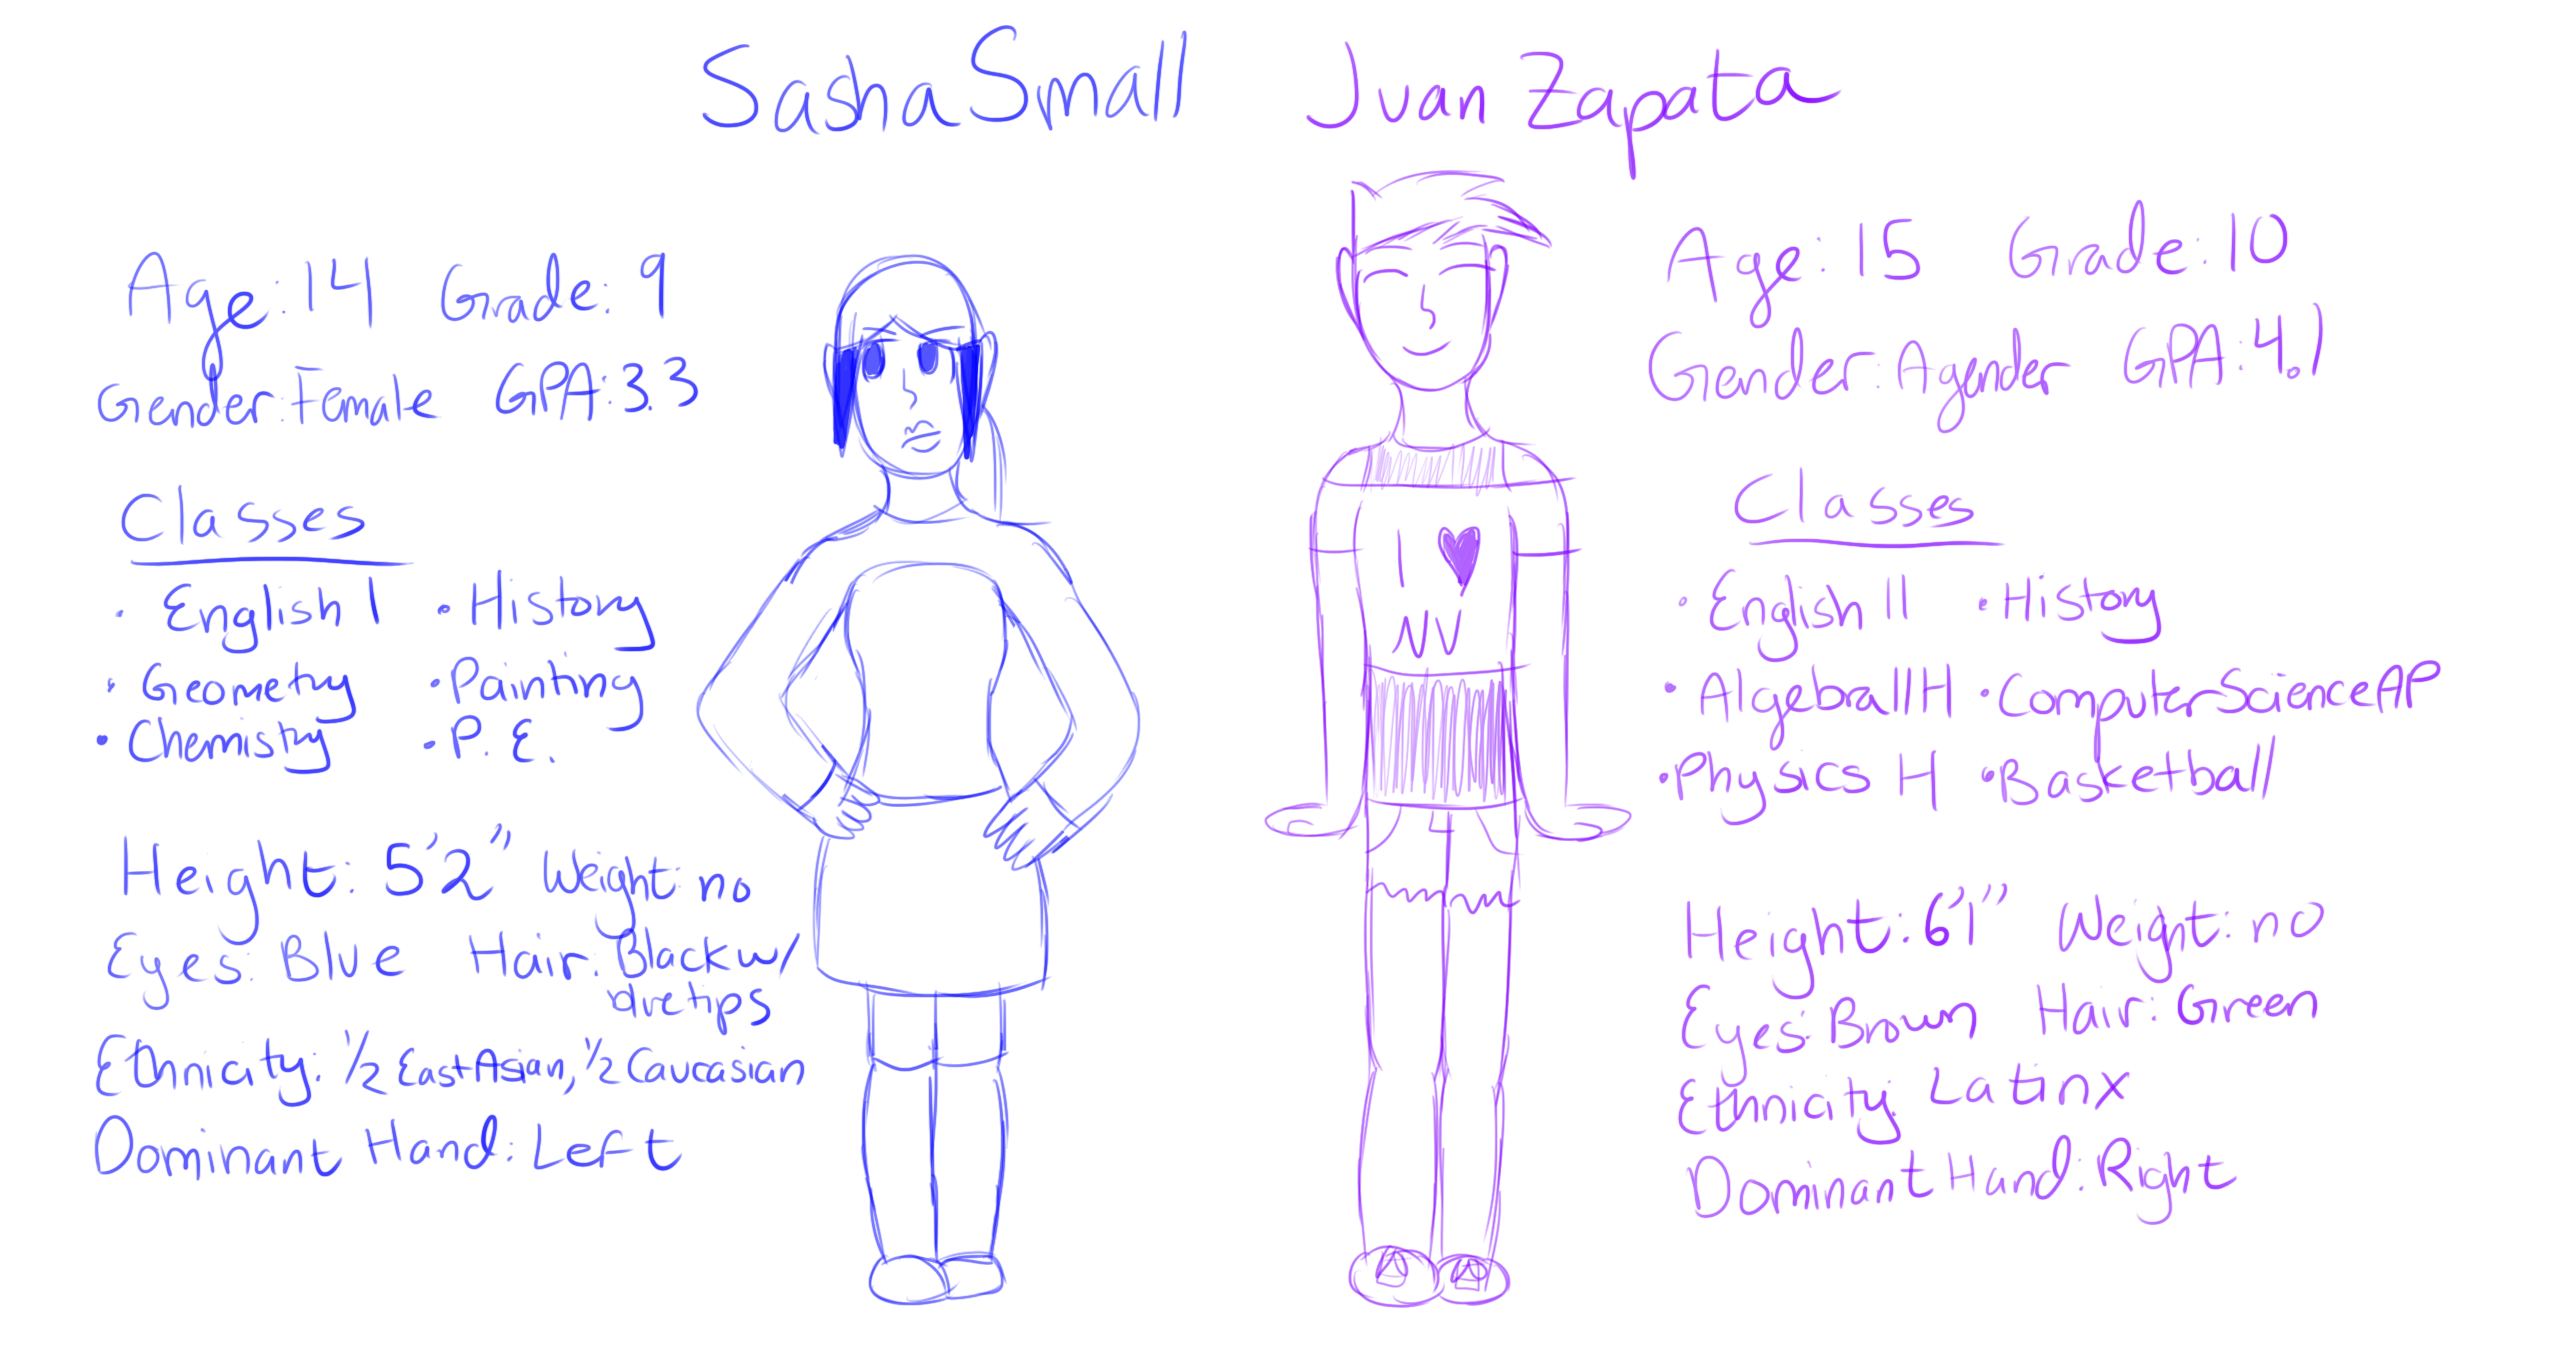 Sasha Small
Age: 14 Grade: 9
Gender: Female GPA: 3.3
Classes
• English I • History
• Geometry • Painting
• Chemistry • P.E.
Height: 5'2" Weight: no
Eyes: Blue Hair: Black w/
tips
Ethnicity: 1/2 East Asian, 1/2 Caucasian
Dominant Hand: Left
Juan Zapata
I ♥
NV
Age: 15 Grade: 10
Gender: Agender GPA: 4.1
Classes
• English II • History
• Algebra II H • Computer Science AP
• Physics H • Basketball
Height: 6'1" Weight: no
Eyes: Brown Hair: Green
Ethnicity: Latinx
Dominant Hand: Right